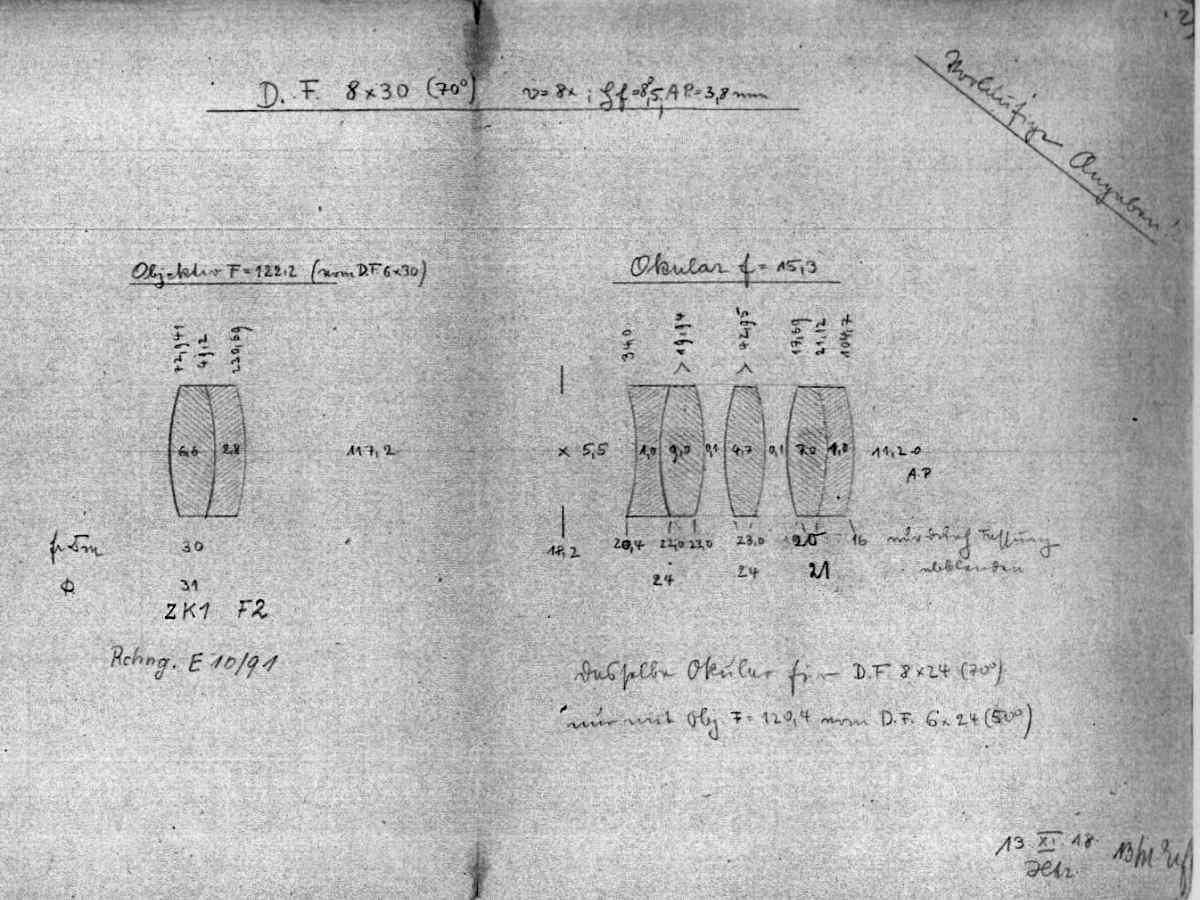 D. F. 8×30 (70°) v = 8× ; Gf = 8,5° AP = 3,8 mm
Vorläufige Angaben!
Objektiv F = 122,2 (vom D.F. 6×30)
Okular f = 15,3
72,941 49,2 230,69
340 > 19,94 > 42,95 17,69 21,12 104,7
6,6 2,8 117,2
× 5,5 1,0 9,0 0,1 4,7 0,1 7,0 1,0 11,2
A.P
fr. Dm 30
18,2 20,4 22,0 23,0 23,0 20 16 nur durch Fassung
abblenden
Φ 31
24 24 21
ZK1 F2
Rchng. E 10/91
Dasselbe Okular für D.F 8×24 (70°)
nur mit Obj F = 120,4 vom D.F. 6×24 (50°)
13 XI 18